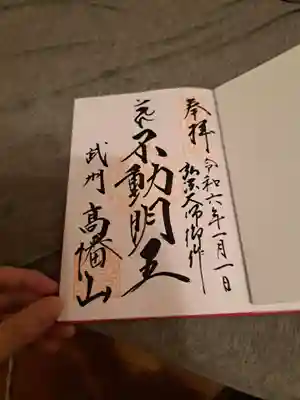 奉拝
令和六年一月一日
弘法大師御作
元本
不動明王
武州
高幡山